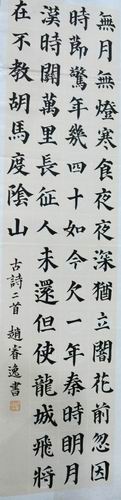 無月無燈寒食夜夜深猶立闇花前忽因
時節驚年幾四十如今欠一年秦時明月
漢時關萬里長征人未還但使龍城飛將
在不教胡馬度陰山 古詩二首 趙睿逸書